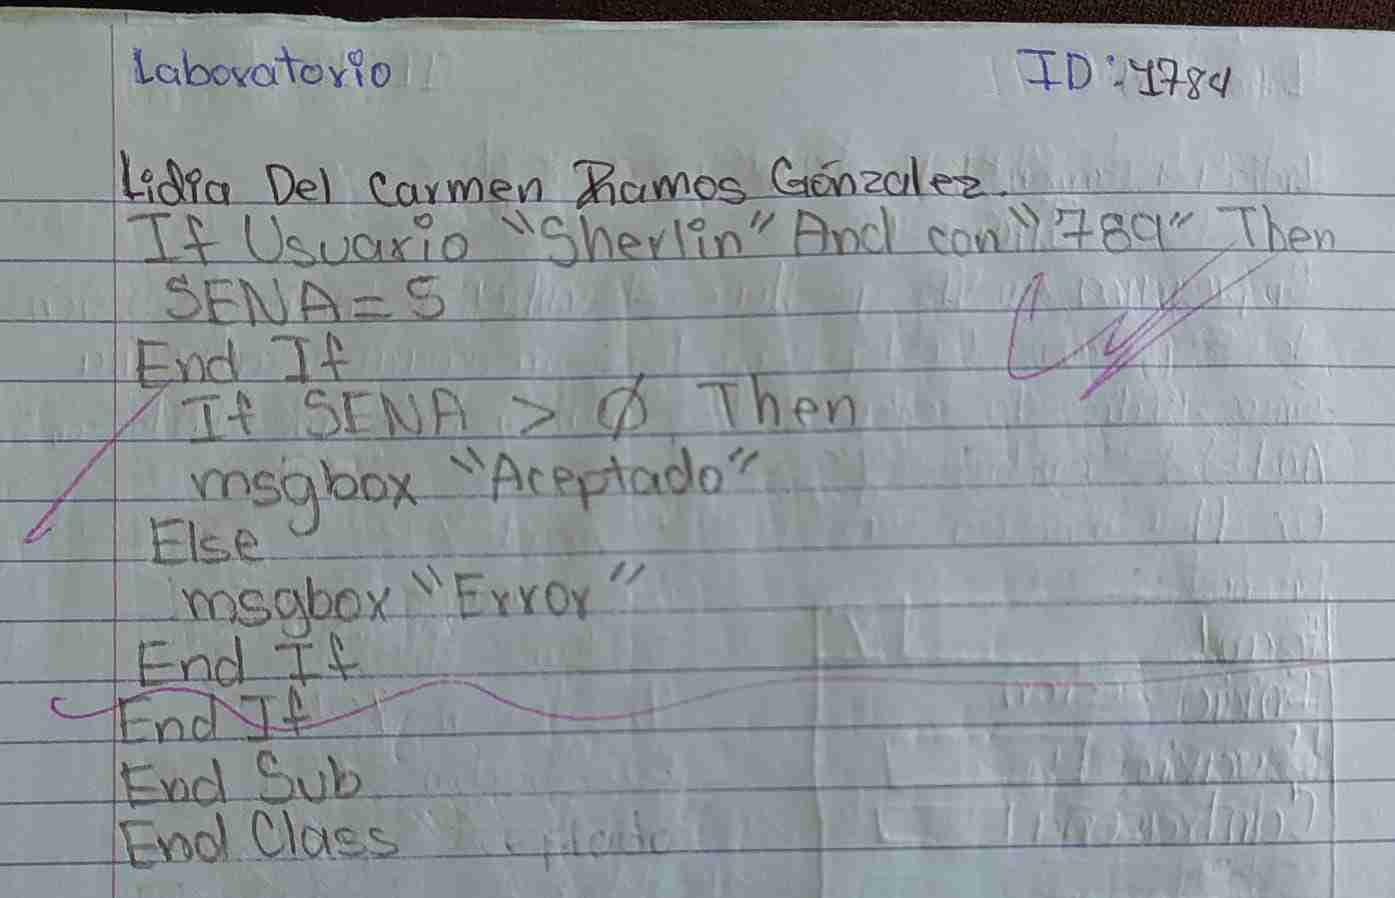 Laboratorio ID: 1784
Lidia Del Carmen Ramos Gónzalez.
If Usuario "Sherlin" And con "789" Then
SENA = 5
End If
If SENA > Ø Then
msgbox "Aceptado"
Else
msgbox "Error"
End If
End If
End Sub
End Class